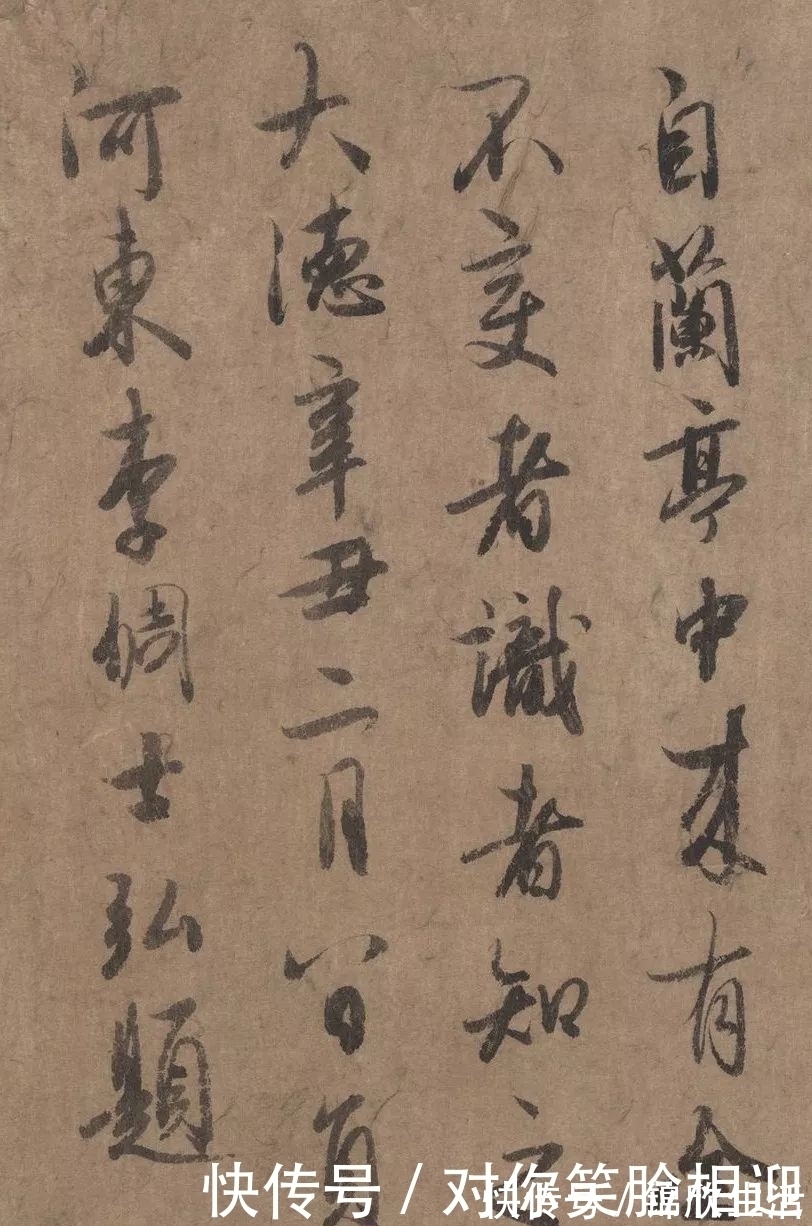 自蘭亭中来有
不变者識者知
大德辛丑二月八日
河東李倜士弘題
快传号 / 对你笑脸相迎
快传号 /